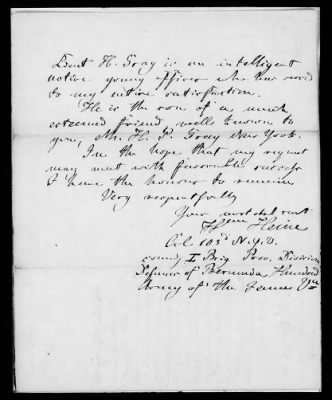 Lieut H. Gray is an intelligent
active young officer who has served
to my entire satisfaction.
He is the son of a much
esteemed friend, well known to
you, Mr. H. P. Gray New York.
In the hope that my request
may meet with favorable
I have the honour to remain
Very respectfully
Your most obd servt
Wm Heine
Col. 103d N.Y.V.
comdg I Brig Prov. Division
Defences of Bermuda Hundred
Army of the James Va